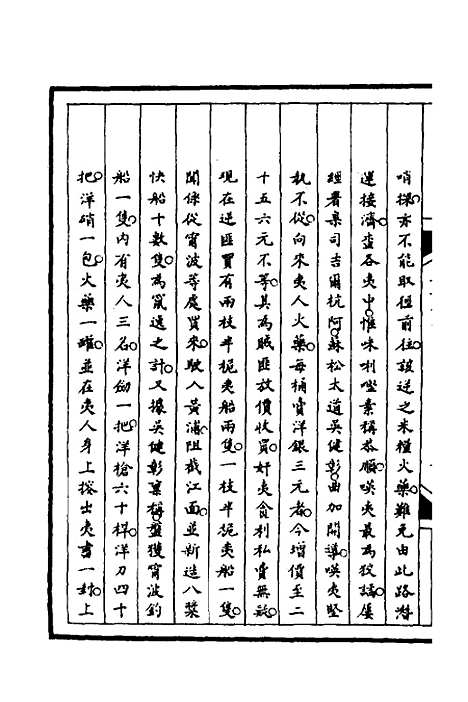 哨探亦不能取徑前往該逆之米糧火藥難免由此路潛
運接濟查各夷中惟咪唎㗎素稱恭順㗸夷最為狡譎屢
經署臬司吉爾杭阿蘇松太道吳健彰曲加開導㗸夷堅
執不從向來夷人火藥每桶賣洋銀三元者今增價至二
十五六元不等其為賊匪放價收買奸夷貪利私賣無疑
現在逆匪買有兩枝半桅夷船兩隻一枝半桅夷船一隻
聞係從甯波等處買來駛入黃浦阻截江面並新造八槳
快船十數隻為竄逸之計又據吳健彰稟稱盤獲甯波釣
船一隻內有夷人三名洋劍一把洋槍六十桿洋刀四十
把洋硝一包火藥一罐並在夷人身上搜出夷書一封上